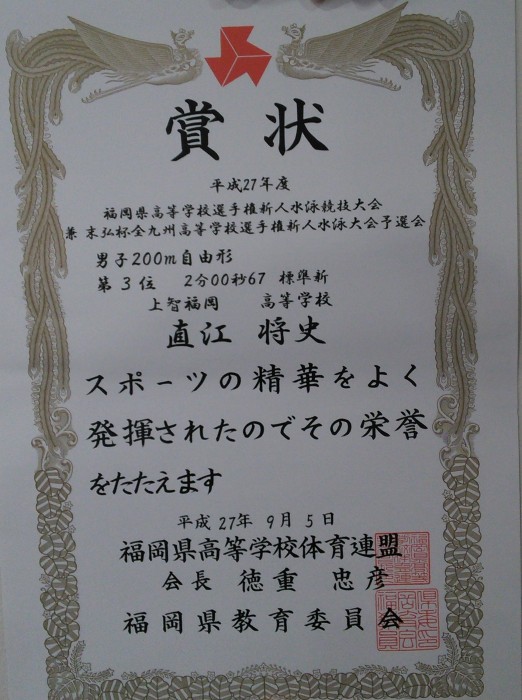 賞状
平成27年度
福岡県高等学校選手権新人水泳競技大会
兼 末弘杯全九州高等学校選手権新人水泳大会予選会
男子200m自由形
第3位 2分00秒67 標準新
上智福岡 高等学校
直江 将史
スポーツの精華をよく
発揮されたのでその栄誉
をたたえます
平成27年9月5日
福岡県高等学校体育連盟
会長 徳重 忠彦
福岡県教育委員会